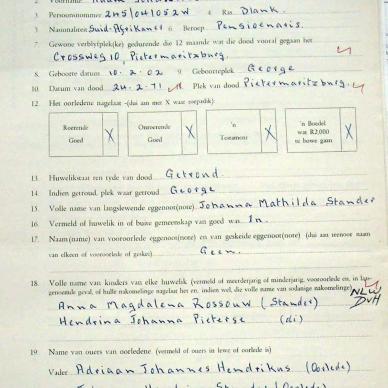 2. Voorname
3. Persoonsnommer 245/041052W 4. Ras Blank.
5. Nasionaliteit Suid-Afrikaner 6. Beroep Pensioenaris.
7. Gewone verblyfplek(ke) gedurende die 12 maande wat die dood vooraf gegaan het
Crossweg 10, Pietermaritzburg.
8. Geboorte datum 10.2.02 9. Geboorteplek George
10. Datum van dood 24.2.71 11. Plek van dood Pietermaritzburg.
12. Het oorledene nagelaat -(dui aan met X waar toepaslik):
Roerende Goed X
Onroerende Goed X
'n Testament X
'n Boedel wat R2,000 te bowe gaan X
13. Huwelikstaat ten tyde van dood Getroud.
14. Indien getroud, plek waar getroud George
15. Volle name van langslewende eggenoot(note) Johanna Mathilda Stander
16. Vermeld of huwelik in of buite gemeenskap van goed was In.
17. Naam(name) van vooroorlede eggenoot(note) en van geskeide eggenoot(note) (dui aan teenoor naam
van elkeen of oorlede of geskei) Geen.
18. Volle name van kinders van elke huwelik (vermeld of meerderjarig of minderjarig, vooroorlede en, in
genoemde geval, of hulle nakomelinge nagelaat het en, indien wel, die volle name van sodanige nakomelinge)
NLW
DVH
Anna Magdalena Rossouw (Stander)
Hendrina Johanna Pieterse (di)
19. Name van ouers van oorledene (vermeld of ouers in lewe of oorlede is)
Vader Adriaan Johannes Hendrikus (Oorlede)